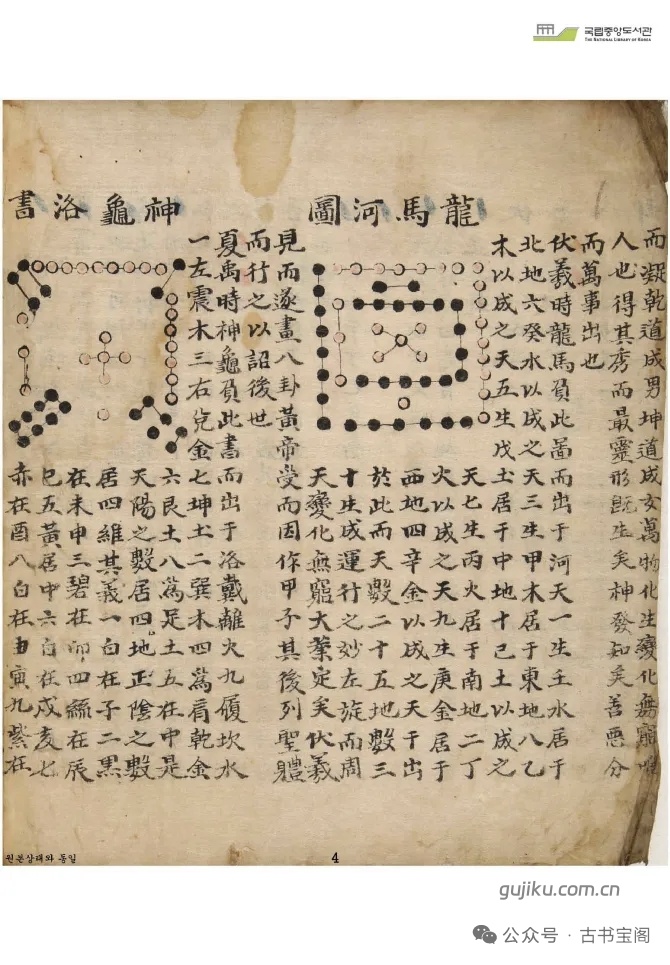 국립중앙도서관
THE NATIONAL LIBRARY OF KOREA
而凝乾道成男坤道成女萬物化生變化無窮惟
人也得其秀而最靈形既生矣神發知矣善惡分
而萬事出也
龍馬河圖
伏羲時龍馬負此圖而出于河天一生壬水居于
北地六癸水以成之天三生甲木居于東地八乙
木以成之天五生戊土居于中地十己土以成之
天七生丙火居于南地二丁
火以成之天九生庚金居于
西地四辛金以成之天干出
於此而天數二十五地數三
十生成運行之妙左旋而周
天變化無窮大業定矣伏羲
見而遂畫八卦黃帝受而因作甲子其後列聖軆
而行之以詔後世
神龜洛書
夏禹時神龜負此書而出于洛戴離火九履坎水
一左震木三右兌金七坤土二巽木四爲肩乾金
六艮土八爲足土五在中是
天陽之數居四地正陰之數
居四維其義一白在子二黑
在未申三碧在卯四綠在辰
巳五黃居中六白在戌亥七
赤在酉八白在丑寅九紫在
원본상태와 동일
4
gujiku.com.cn
公众号·古书宝阁